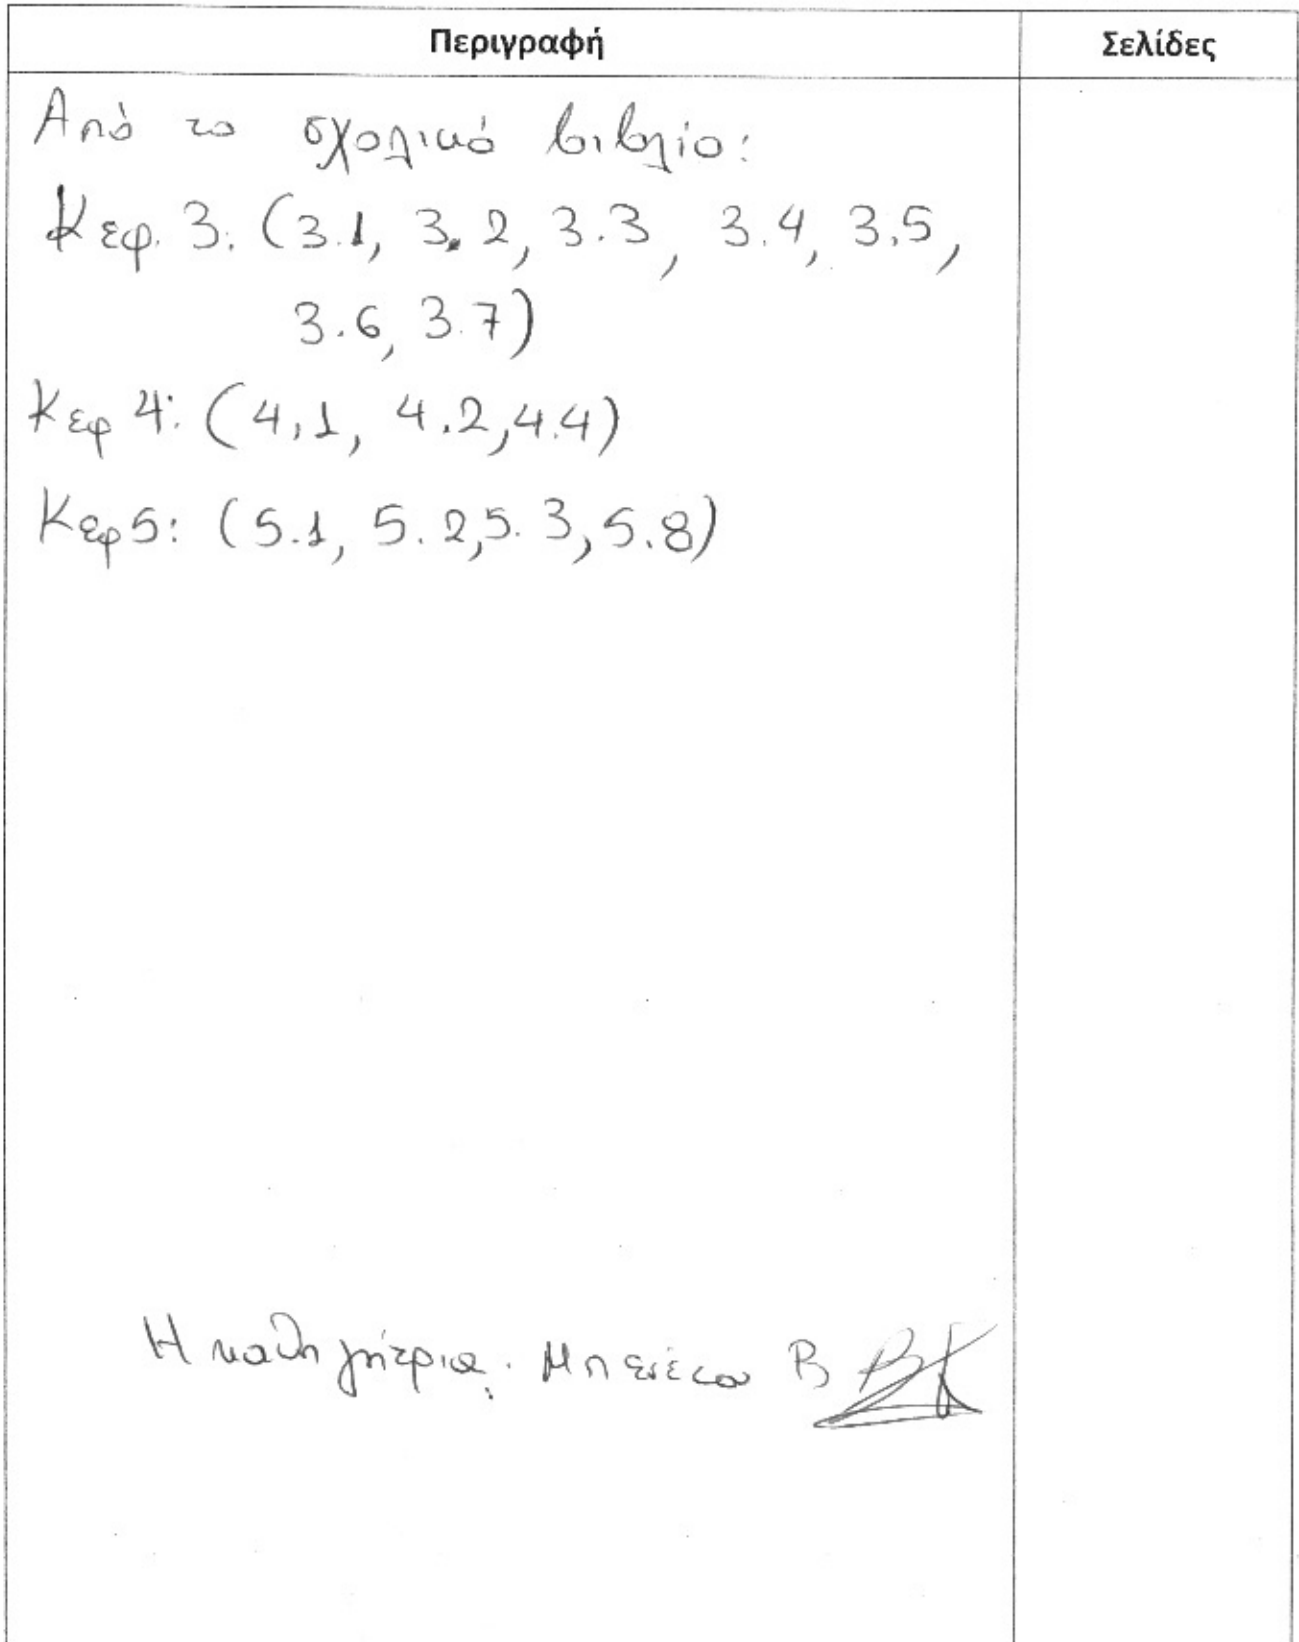 Περιγραφή Σελίδες
Από το σχολικό βιβλίο:
Κεφ. 3: (3.1, 3.2, 3.3, 3.4, 3.5,
3.6, 3.7)
Κεφ 4: (4.1, 4.2, 4.4)
Κεφ 5: (5.1, 5.2, 5.3, 5.8)
Η καθηγήτρια: Β